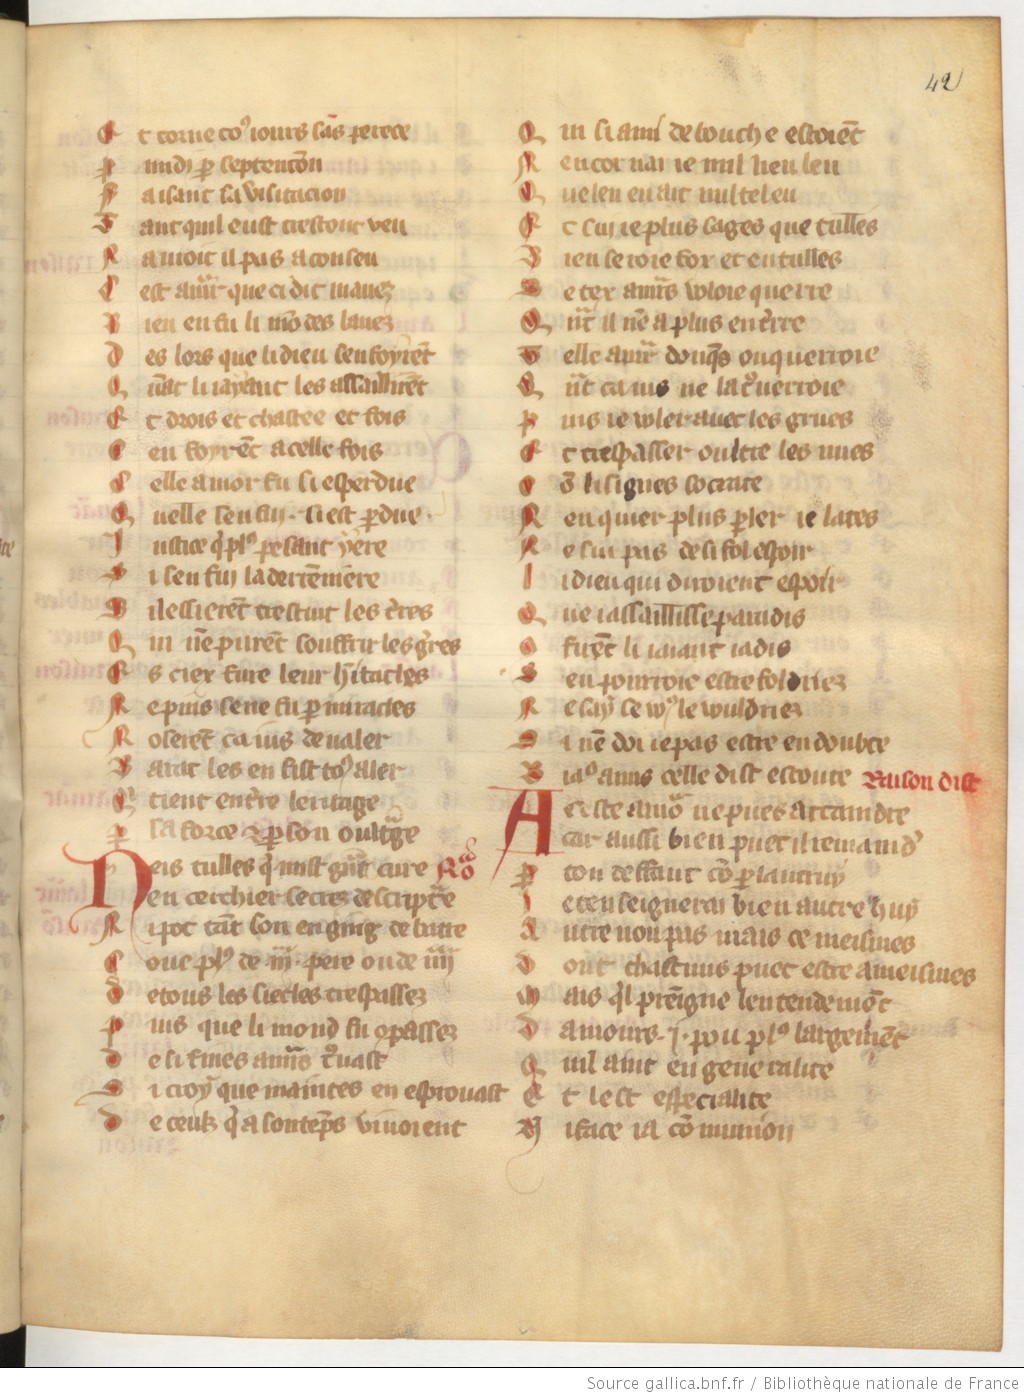 42
E t torne to⁹ iours sãs perece
P midi ꝑ septentrõn
F aisant sa visitacion
T ant quil eust trestout veu
R amoit il pas a conseu
C est amr̃ que ci dit mauez
B ien en fu li mõdes lauez
D es lors que li dieu senfoyrẽt
Q ñat li iayant les assaillirẽt
E t drois et chastee et fois
S en foyrẽt a celle fois
C elle amor fu si esperdue
Q uelle sen fui · si est ꝑdue ·
J ustice q̃ pl⁹ pesant yere
S i sen fuy la derrẽniere
S i lessierẽt trestuit les tr̃res
Q ui nẽ purẽt souffrir les gr̃res
E s ciex fire leur hĩtacles
R e puis se ne fu ꝑ miracles
R oserẽt ca ius deualer
B arat les en fist to⁹ aler
Q tient en tr̃re leritage
P sa force ꝑ son oultr̃ge
N eis tulles q̃ mist gr̃t cure Rõ
en cerchier secrez descriptr̃e
R i pot tãt son enging debatre
C onc pl⁹ de .iij. pere ou de iiij
D e tous les siecles trespassez
P uis que li mond fu ꝯpassez
D e si fines amr̃s tr̃uast
S i croy que maintes en esprouast
D e ceulz q̃ a son tẽps viuoient
Q ui si ami de bouche estoiẽt
R encor nai ie mil lieu leu
Q ue len en ait nul tel eu
E t sui ie plus sages que tulles
B ien seroie fox et entulles
S e tex amrs voloie querre
Q ñt il nẽ a plus en tr̃re
T elle amr̃ donq̃s ou querroie
Q ñt ca ius ne la tr̃uerroie
P uis ie voler auec les grues
E t trespasser oultre les nues
C õ li signes socrate
R en quier plus ꝑler ie lates
R e sui pas de si fol espoir
L i dieu qui diroient espoir
Q ue iassaillisse paradis
C fuẽt li iaiant iadis
S en pourroie estre foldriez
R e say se vo⁹ le vouldriez
S i nẽ doi ie pas estre en doubte
B iaus amis celle dist escoute Raison dist
A ceste amõ ne pues attaindre
car aussi bien puet il remaind⁹
P ton deffaut cõ ꝑ lautruy
J e tenseignerai bien autre huy
A utre non pas mais ce meismes
D ont chascuns puet estre a meismes
M ais q̃l prẽigne lentendemẽt
D amours .j. pou pl⁹ largemẽt
Q uil aint en generalite
E t lest especialite
N i face ia cõmunion
Source gallica.bnf.fr / Bibliothèque nationale de France